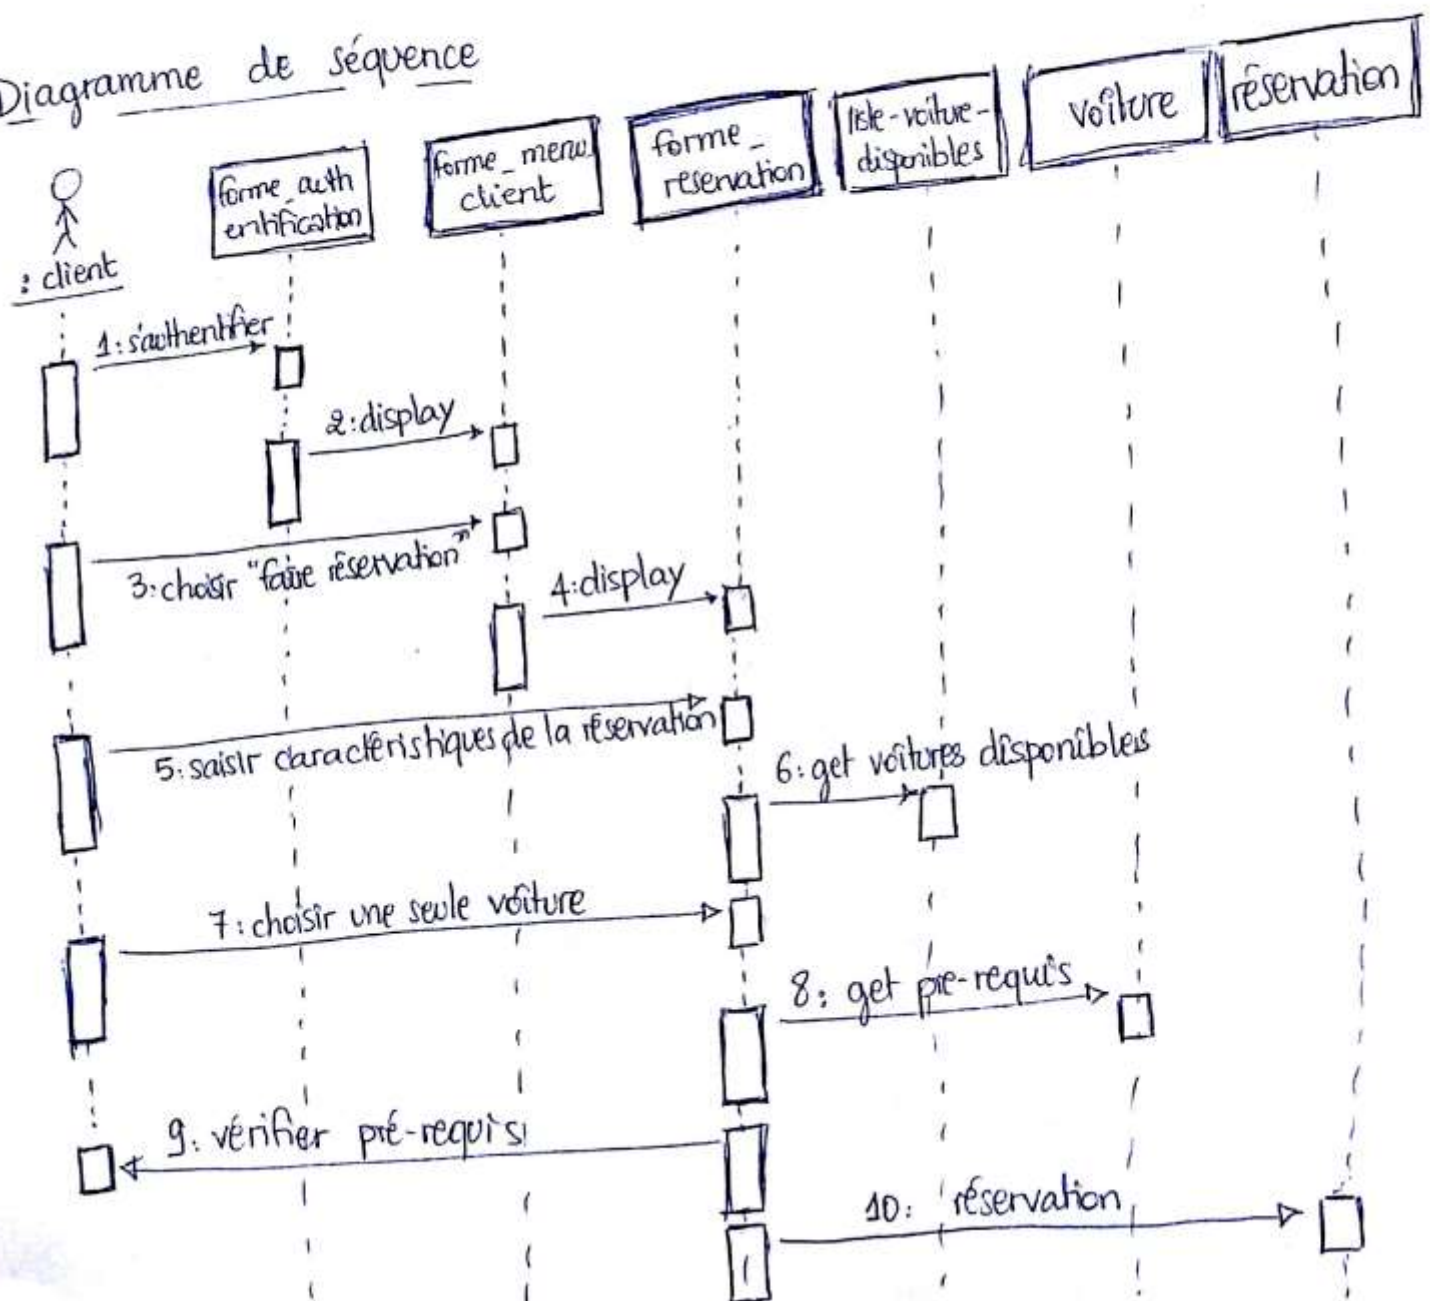 Diagramme de séquence
: client
forme_auth
entification
forme_menu
client
forme_
reservation
liste-voiture-
disponibles
voiture
réservation
1: s'authentifier
2: display
3: choisir "faire réservation"
4: display
5: saisir caractéristiques de la réservation
6: get voitures disponibles
7: choisir une seule voiture
8: get pre-requis
9: vérifier pré-requis
10: réservation